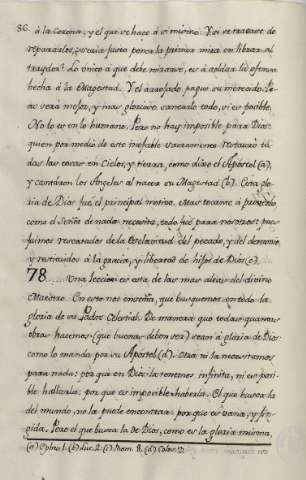 86. à la Corona, y el que se hace à si mismo. Y si se tratase de
repararlos, seria justo poner la primera mira en librar al
traydor? Lo unico à que debe mirarse, es à aplacar la ofensa
hecha à la Magestad. Y el arrojado pague su merecido. Pe-
ro serà mejor, y mas glorioso sanearlo todo, si es posible.
No lo es en lo humano. Pero no hay imposible para Dios:
quien por medio de este inefable Sacramento restaurò to-
das las cosas en Cielos, y tierra, como dixo el Apostol (a),
y cantaron los Angeles al nacer su Magestad (b). Esta glo-
ria de Dios fue el principal motivo. Mas tocante à provecho
como el Señor de nada necesita, todo fue para nosotros: que
fuimos rescatados de la esclavitud del pecado, y del demonio
y restituidos à la gracia, y libertad de hijos de Dios (c).
78..... Una leccion es esta de las mas altas del divino
Maestro. En esto nos enseña, que busquemos en todo la
gloria de su Padre Celestial. De manera que todas quantas
obras hacemos (que buenas deben ser) sean à gloria de Dios:
como lo manda por su Apostol (d). Otra ni la necesitamos
para nada: por que en Dios la tenemos infinita, ni es posi-
ble hallarla: por que es imposible haberla. El que busca la
del mundo, no la puede encontrar: por que es vana, y fin-
gida. Pero el que busca la de Dios, como es la gloria misma,
(a) Ephes. 1. (b) Luc. 2. (c) Rom. 8. (d) Colos.